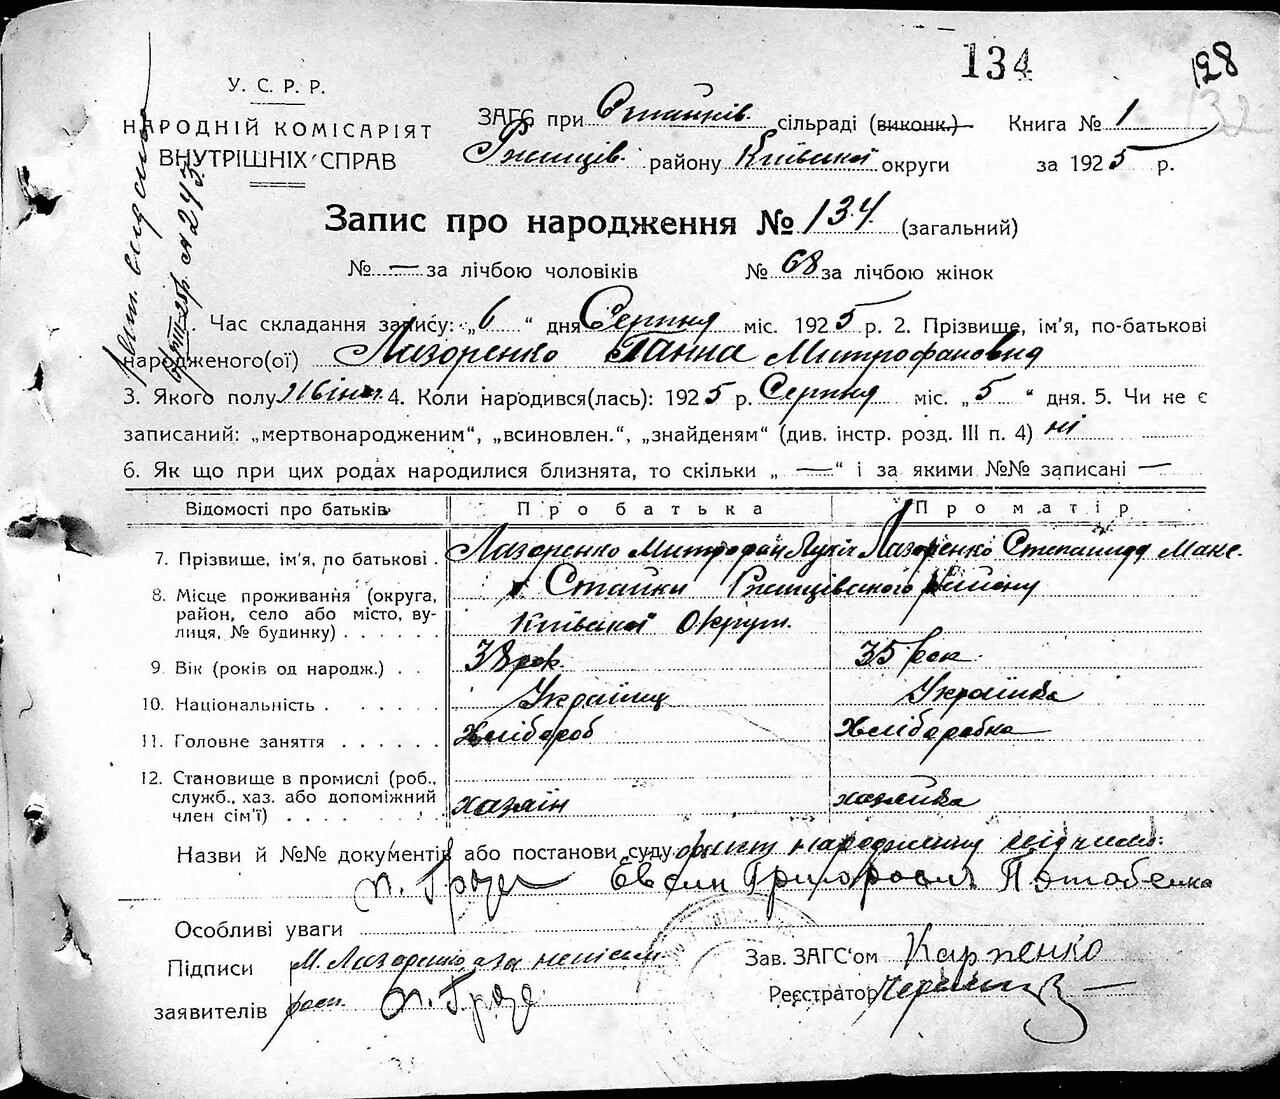 134
128
132
У. С. Р. Р.
НАРОДНІЙ КОМІСАРІЯТ
ВНУТРІШНІХ СПРАВ
№ 243
ЗАГС при Стайків. сільраді (виконк.) Книга № 1
Ржищів. району Київської округи за 1925 р.
Запис про народження № 134 (загальний)
№ — за лічбою чоловіків № 68 за лічбою жінок
Час складання запису: „6“ дня Серпня міс. 1925 р. 2. Прізвище, ім'я, по-батькові
народженого(ої) Лазоренко Ганна Митрофановна
3. Якого полу Жіноч. 4. Коли народився(лась): 1925 р. Серпня міс. „5“ дня. 5. Чи не є
записаний: „мертвонародженим“, „всиновлен.“, „знайденям“ (див. інстр. розд. III п. 4) ні
6. Як що при цих родах народилися близнята, то скільки „—“ і за якими №№ записані —
Відомості про батьків Про батька Про матір
7. Прізвище, ім'я, по батькові . Лазоренко Митрофан Лукіч Лазоренко Степанида Макс.
8. Місце проживання (округа, Стайки Ржищівського району
район, село або місто, ву-
лиця, № будинку) . . . . . . Київської Округи.
9. Вік (років од народж.) . . 38 рок. 35 рок.
10. Національність . . . . . . Українець Українка
11. Головне заняття . . . . . . Хлібороб Хлиборобка
12. Становище в промислі (роб.,
служб., хаз. або допоміжний хазяїн хазяйка
член сім'ї) . . . .
Назви й №№ документів або постанови суду народження свідчимо:
п. Гроза Евсей Григорович
Особливі уваги
Підписи М. Лазоренко, а за неписьм. Зав. ЗАГС'ом Карпенко
заявителів росп. п. Гроза Реєстратор